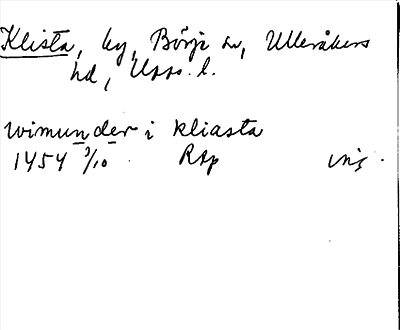 Klista, by, Börje sn, Ulleråkers
hd, Upps. l.
wimunder i kliasta
1454 3/10 RAp